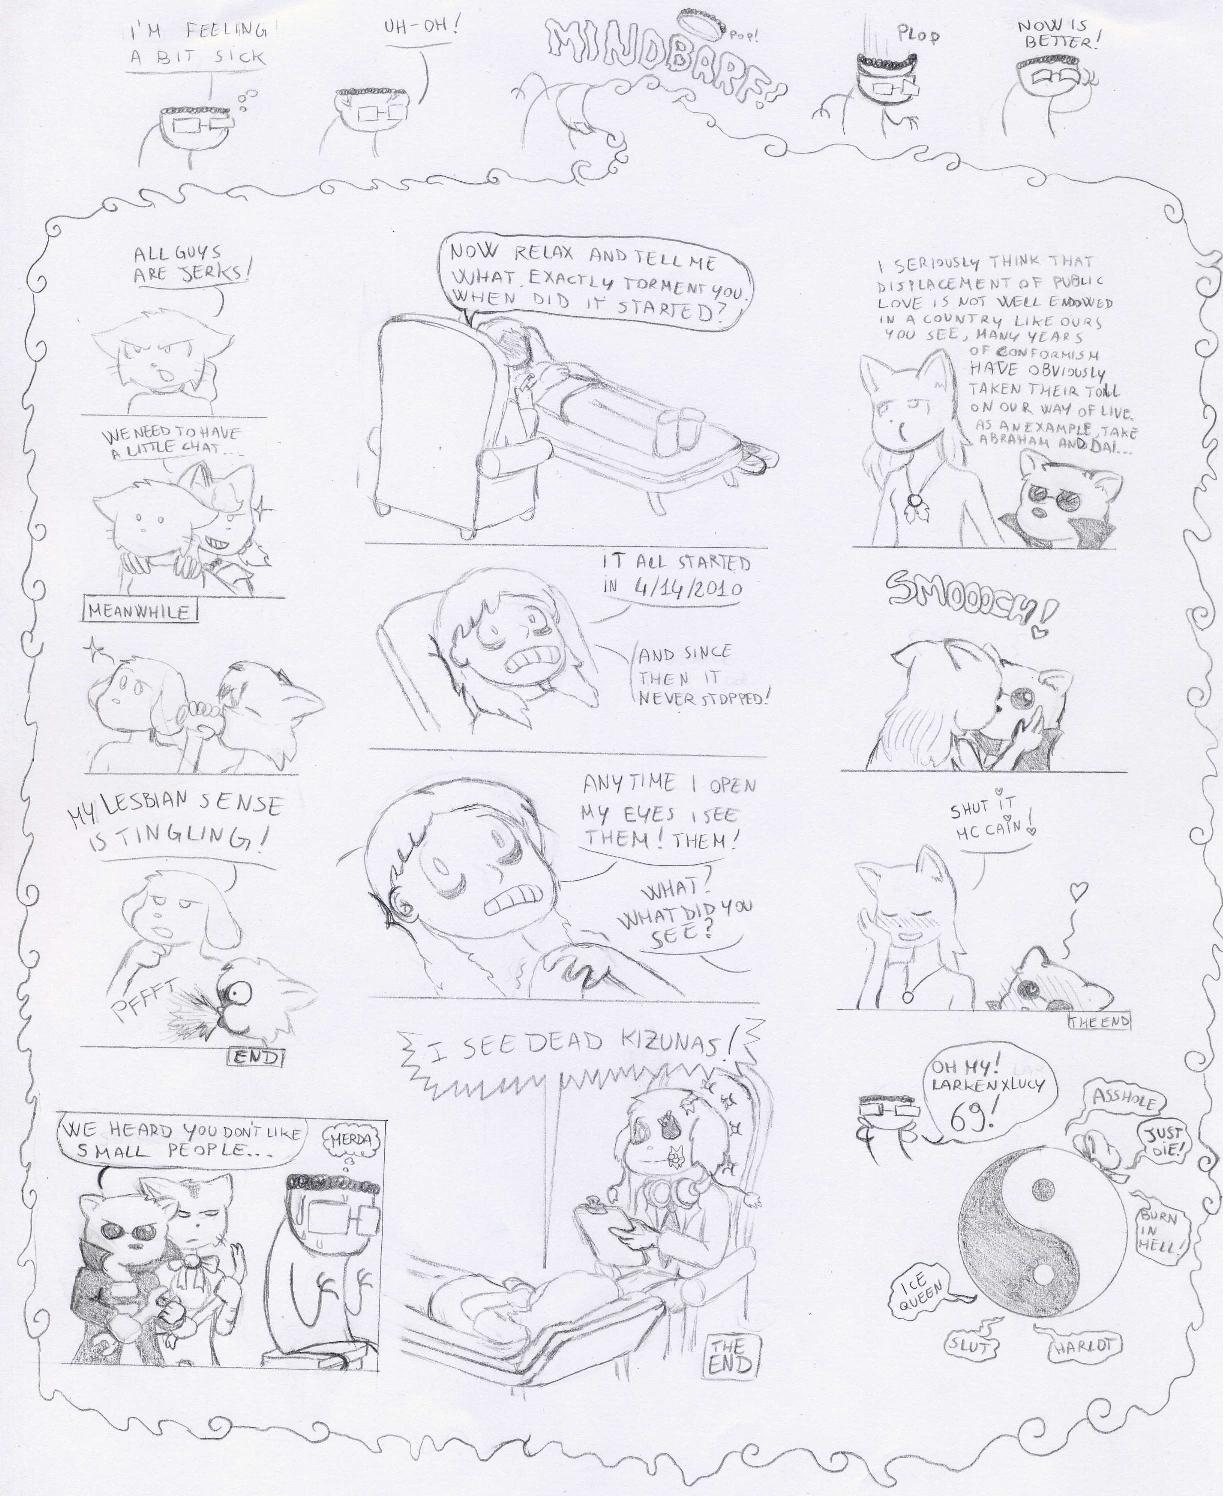 I'M FEELING
A BIT SICK
UH-OH!
MINDBARF!
POP!
PLOP
NOW IS
BETTER!
ALL GUYS
ARE JERKS!
WE NEED TO HAVE
A LITTLE CHAT...
MEANWHILE
MY LESBIAN SENSE
IS TINGLING!
PFFFT
END
NOW RELAX AND TELL ME
WHAT EXACTLY TORMENT YOU.
WHEN DID IT STARTED?
IT ALL STARTED
IN 4/14/2010
AND SINCE
THEN IT
NEVER STOPPED!
ANYTIME I OPEN
MY EYES I SEE
THEM! THEM!
WHAT?
WHAT DID YOU
SEE?
I SEE DEAD KIZUNAS!
THE
END
I SERIOUSLY THINK THAT
DISPLACEMENT OF PUBLIC
LOVE IS NOT WELL ENDOWED
IN A COUNTRY LIKE OURS
YOU SEE, MANY YEARS
OF CONFORMISM
HAVE OBVIOUSLY
TAKEN THEIR TOLL
ON OUR WAY OF LIVE.
AS AN EXAMPLE, TAKE
ABRAHAM AND DAI...
SMOOOCH!
SHUT IT
MC CAIN!
THE END
WE HEARD YOU DON'T LIKE
SMALL PEOPLE...
MERDA
OH MY!
LARKENXLUCY
69!
ASSHOLE
JUST
DIE!
BURN
IN
HELL!
ICE
QUEEN
SLUT
HARLOT